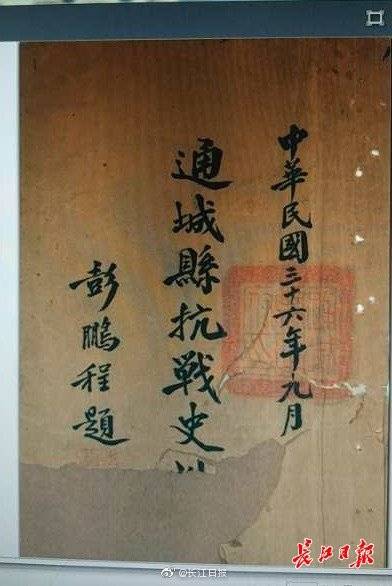 中華民國三十六年九月
通城縣抗戰史
彭鵬程題
@长江日报
长江日报